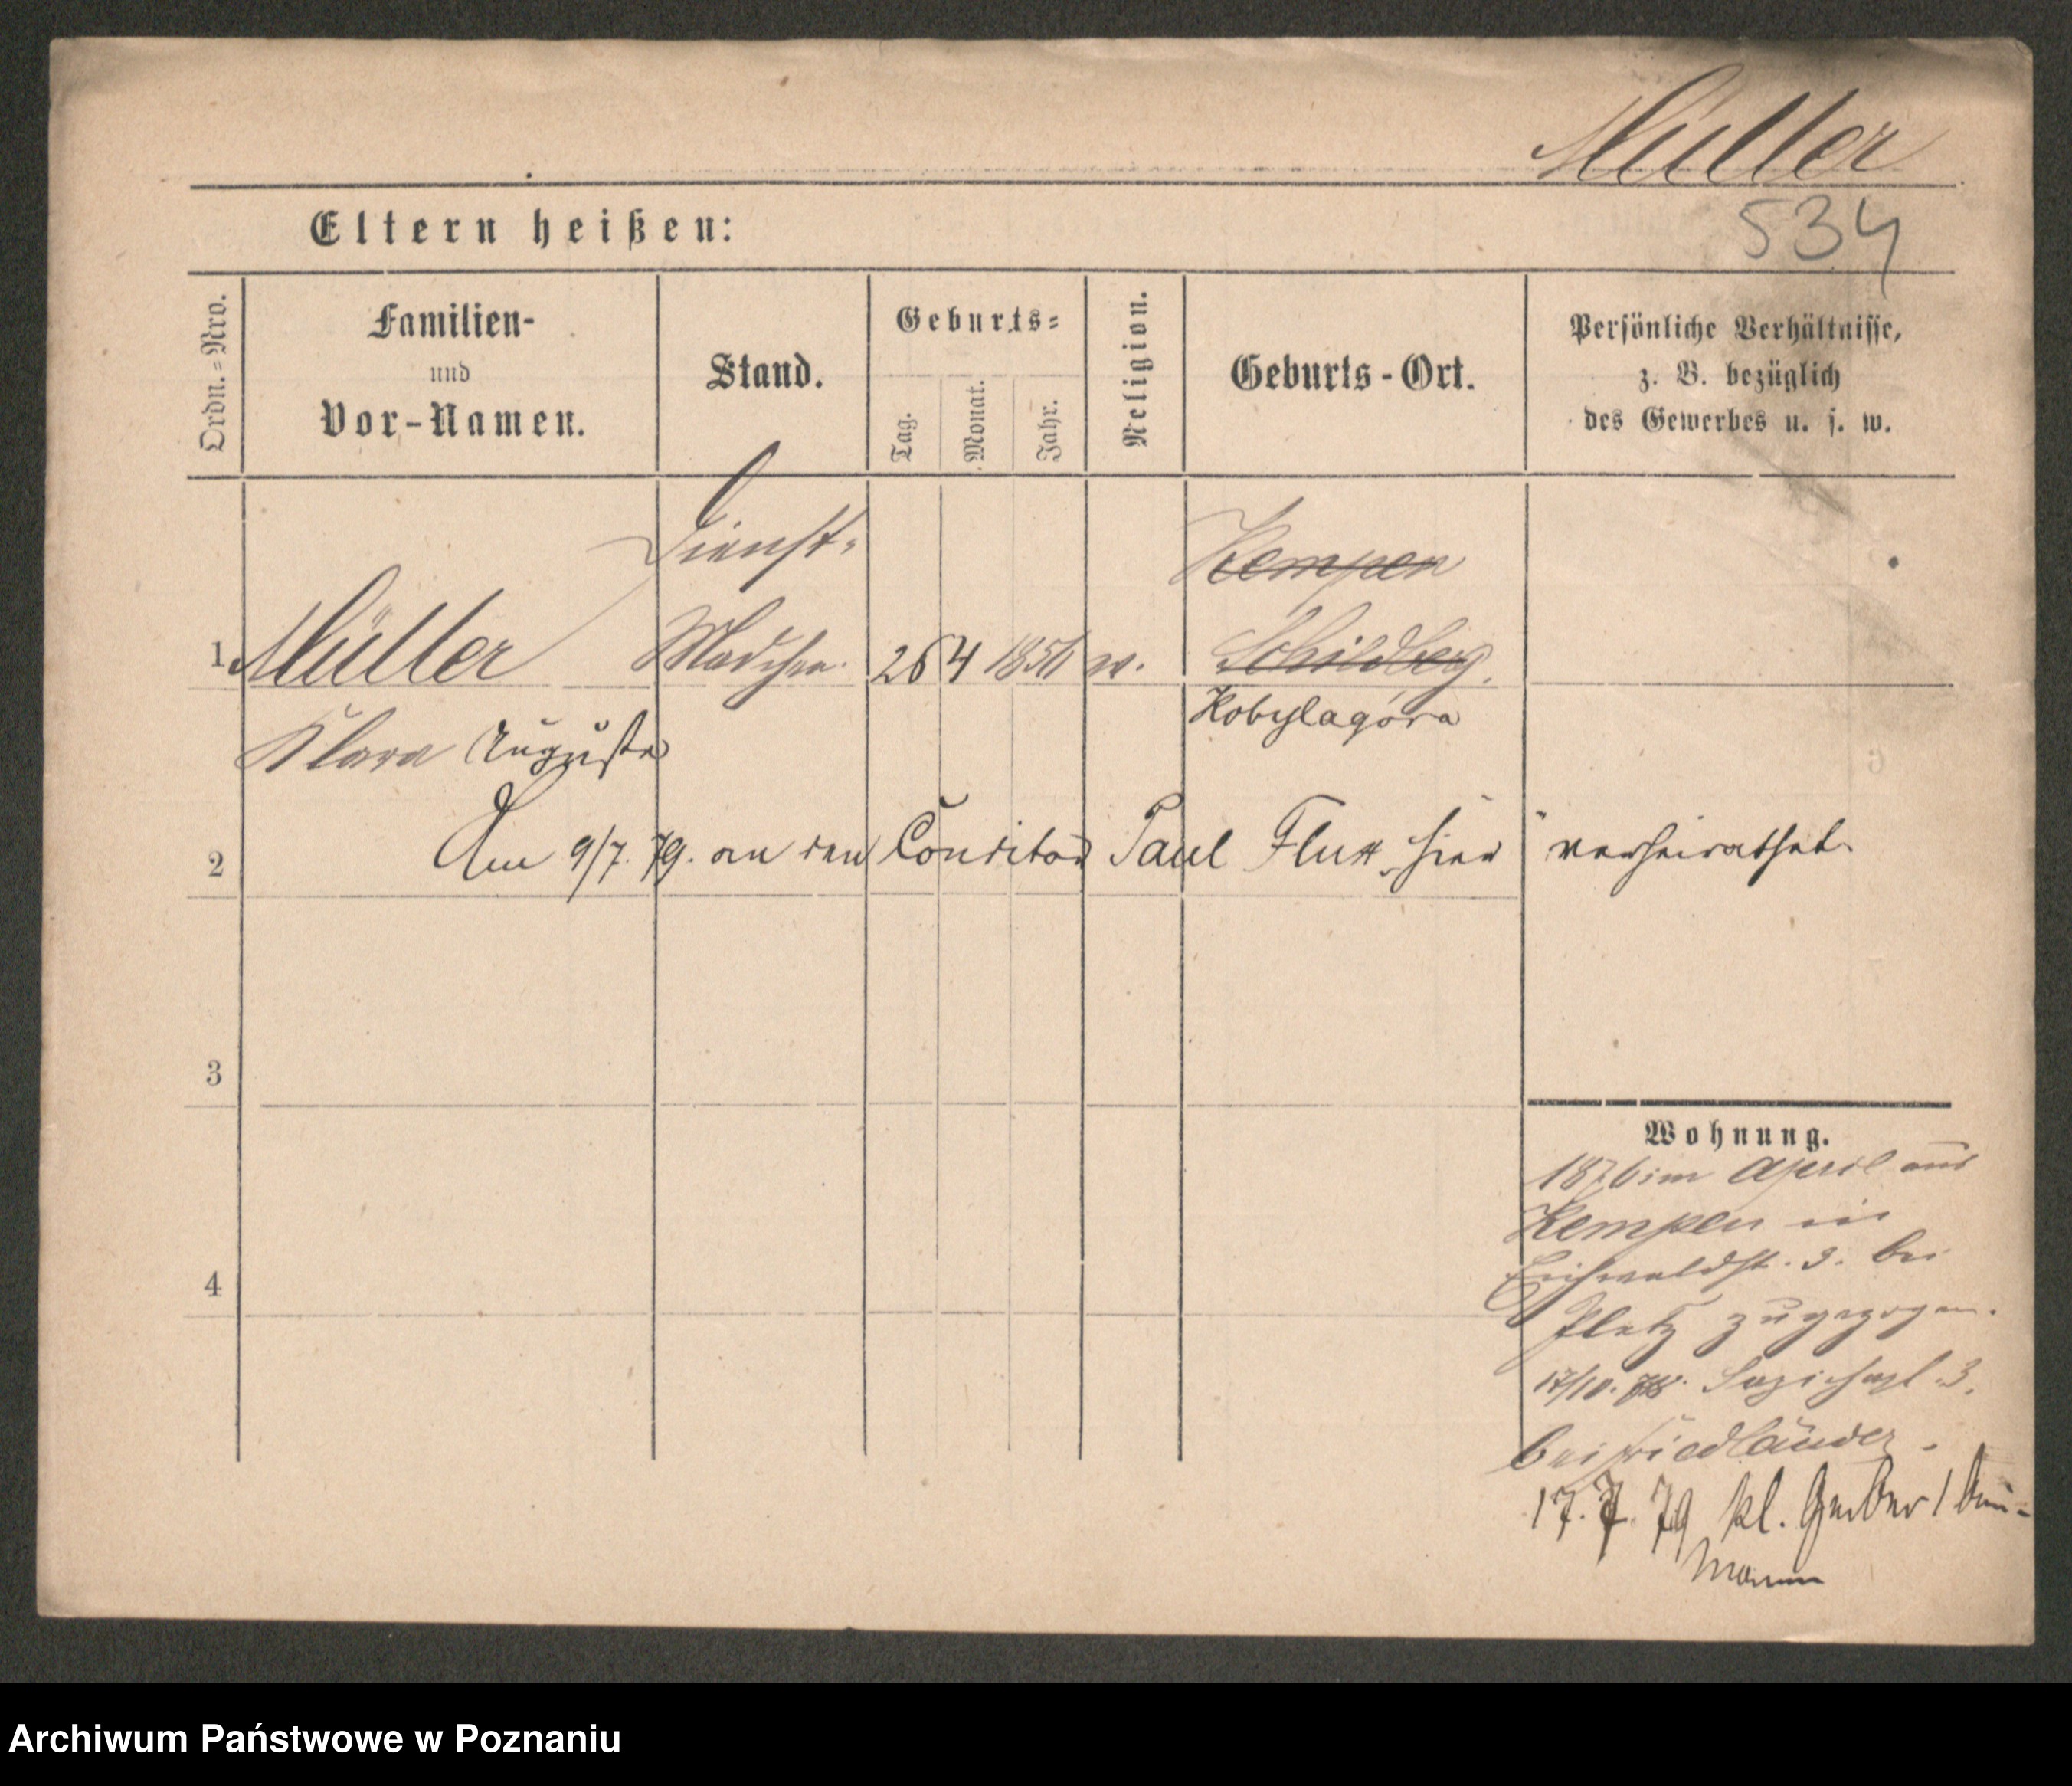 Müller
534
Eltern heißen:
Ordn.-Nro.
Familien-
und
Vor-Namen.
Stand.
Geburts-
Tag.
Monat.
Jahr.
Religion.
Geburts-Ort.
Persönliche Verhältnisse,
z. B. bezüglich
des Gewerbes u. s. w.
Dienst-
Kempen
1 Müller Madchen. 26 4 1856 Schildberg.
Kobylagóra
Klara Auguste
2 Am 9/7. 79. an den Conditor Paul hier verheirathet.
3
Wohnung.
1876 im April aus
Kempen in
Eichwaldst. 3. bei
4
Pletz zugezogen.
17/10. 78. 3.
bei Friedländer.
17. 7. 79 kl. Gerber 1 bei
Mann
Archiwum Państwowe w Poznaniu